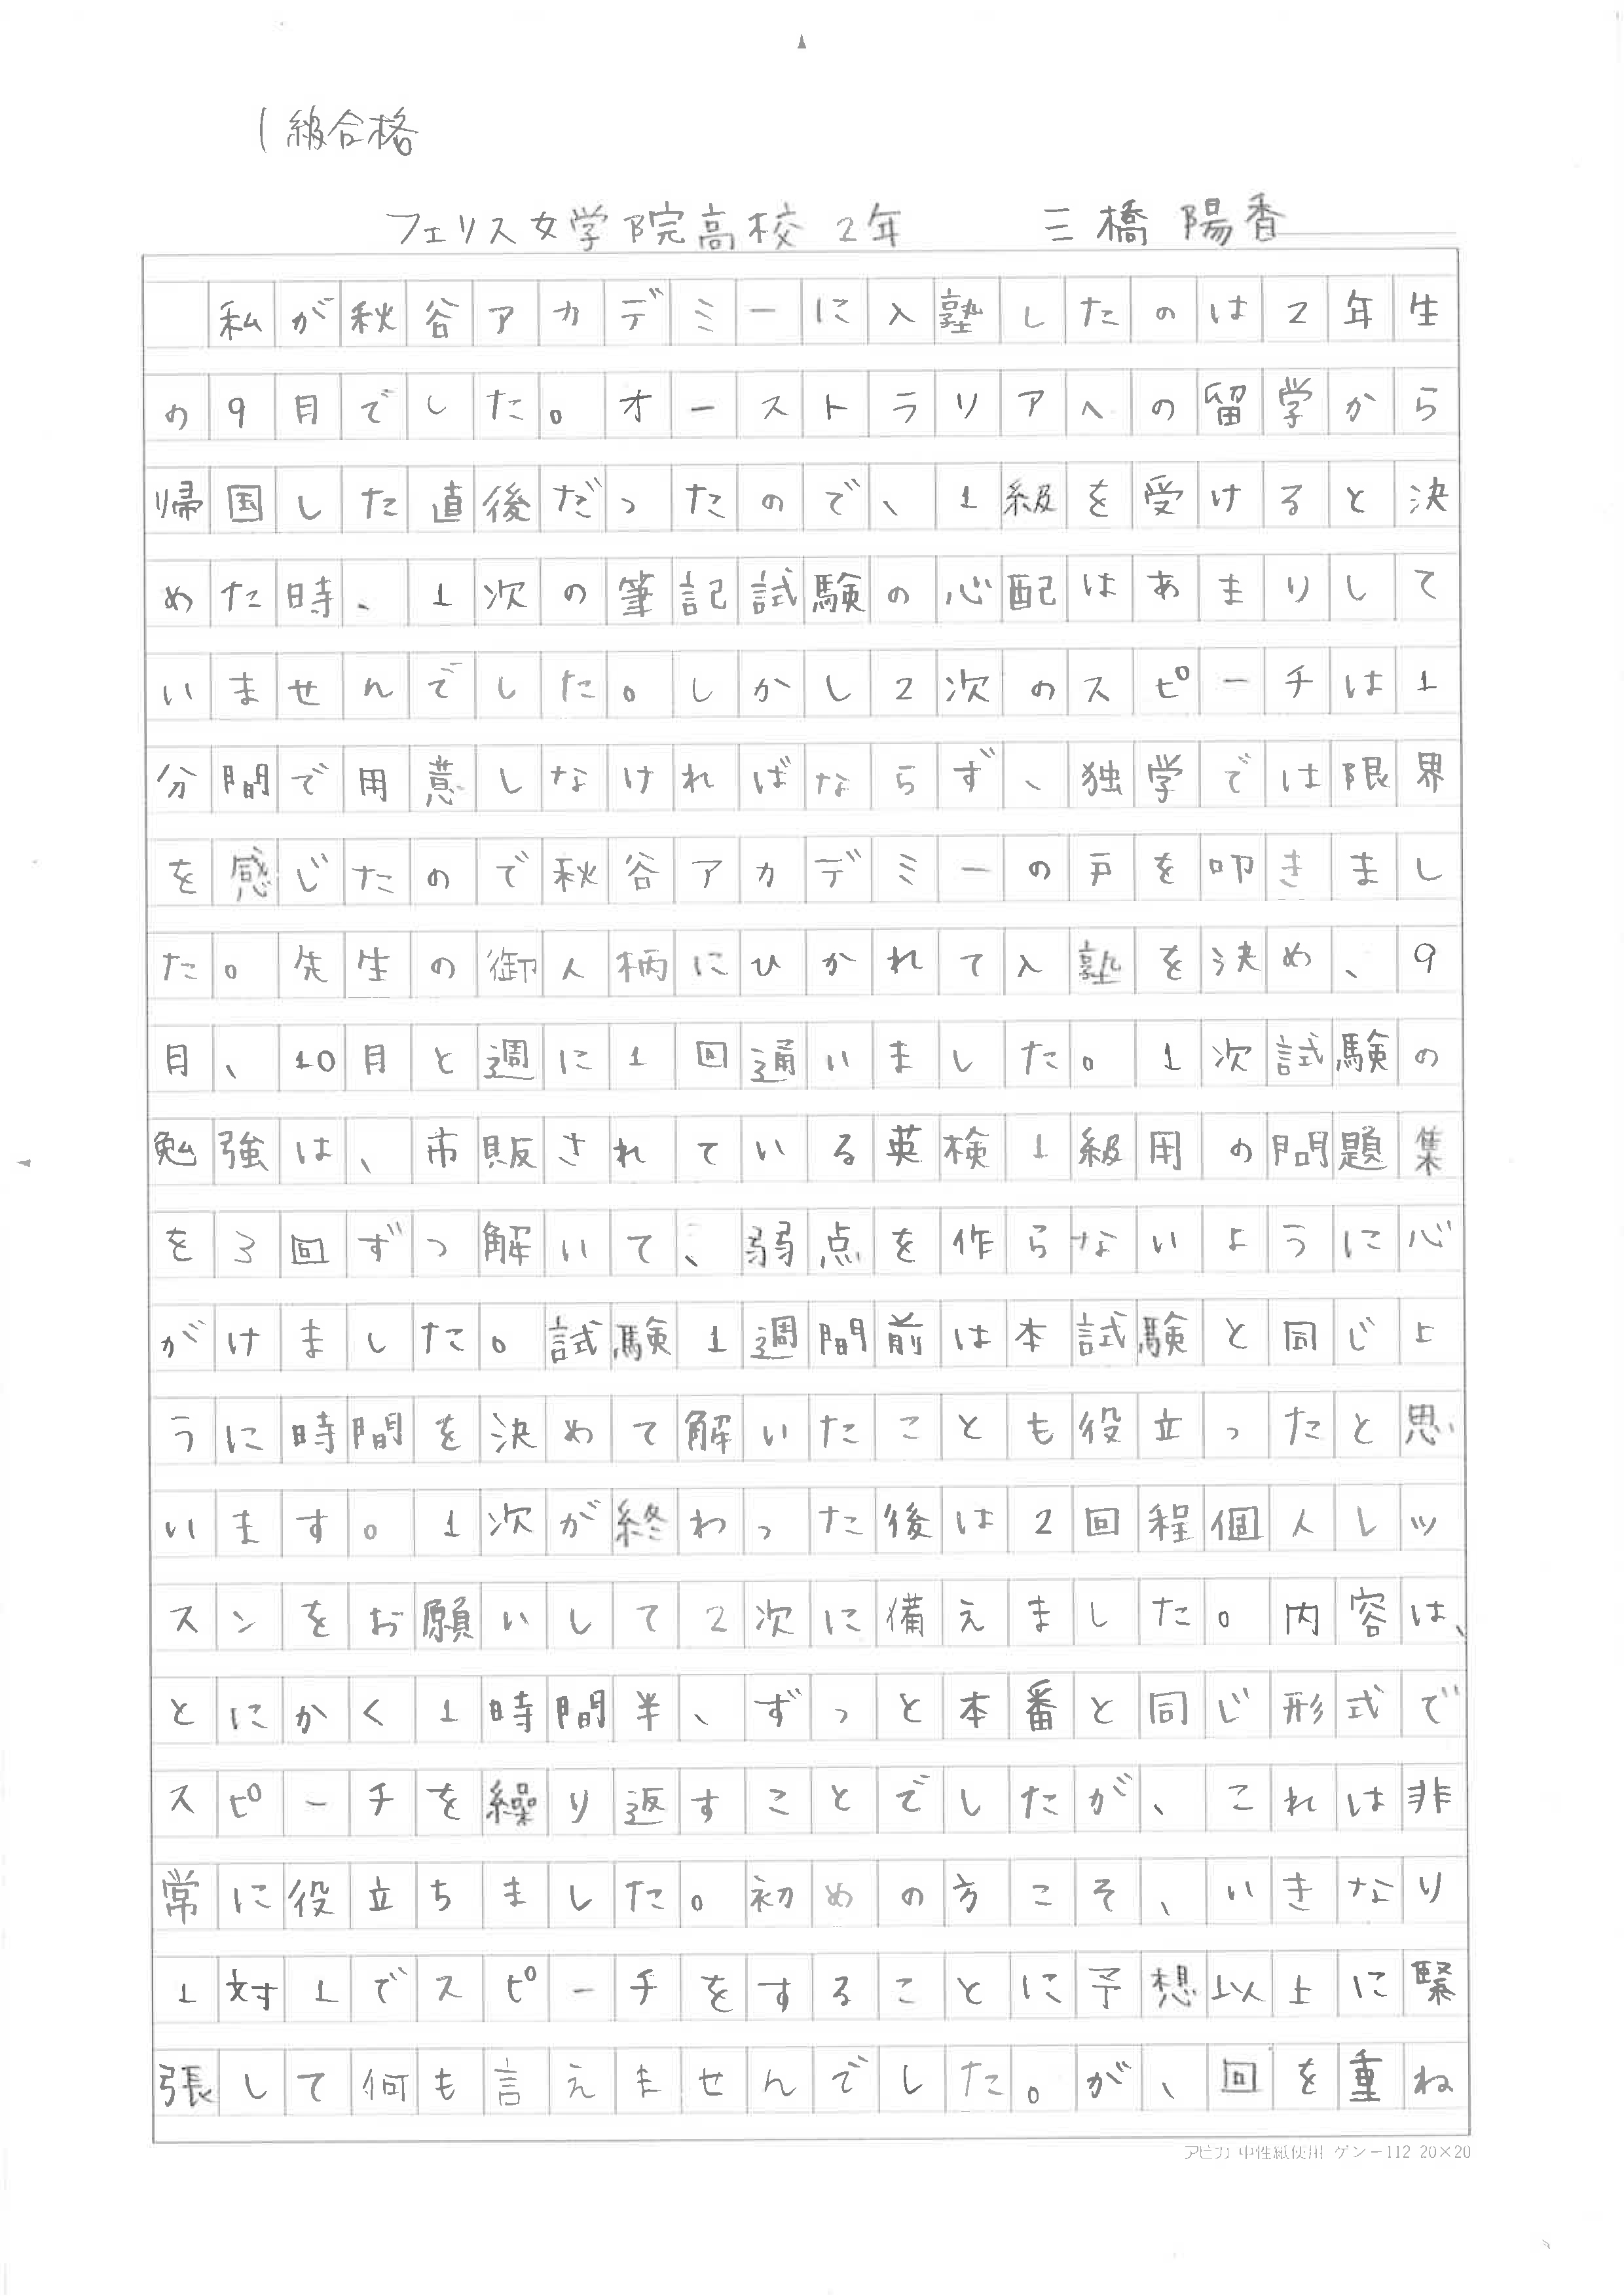 1級合格
フェリス女学院高校 2年 三橋 陽香
私が秋谷アカデミーに入塾したのは2年生
の9月でした。オーストラリアへの留学から
帰国した直後だったので、1級を受けると決
めた時、1次の筆記試験の心配はあまりして
いませんでした。しかし2次のスピーチは1
分間で用意しなければならず、独学では限界
を感じたので秋谷アカデミーの戸を叩きまし
た。先生の御人柄にひかれて入塾を決め、9
月、10月と週に1回通いました。1次試験の
勉強は、市販されている英検1級用の問題集
を3回ずつ解いて、弱点を作らないように心
がけました。試験1週間前は本試験と同じよ
うに時間を決めて解いたことも役立ったと思
います。1次が終わった後は2回程個人レッ
スンをお願いして2次に備えました。内容は、
とにかく1時間半、ずっと本番と同じ形式で
スピーチを繰り返すことでしたが、これは非
常に役立ちました。初めの方こそ、いきなり
1対1でスピーチをすることに予想以上に緊
張して何も言えませんでした。が、回を重ね
アピカ 中性紙使用 ゲン-112 20×20